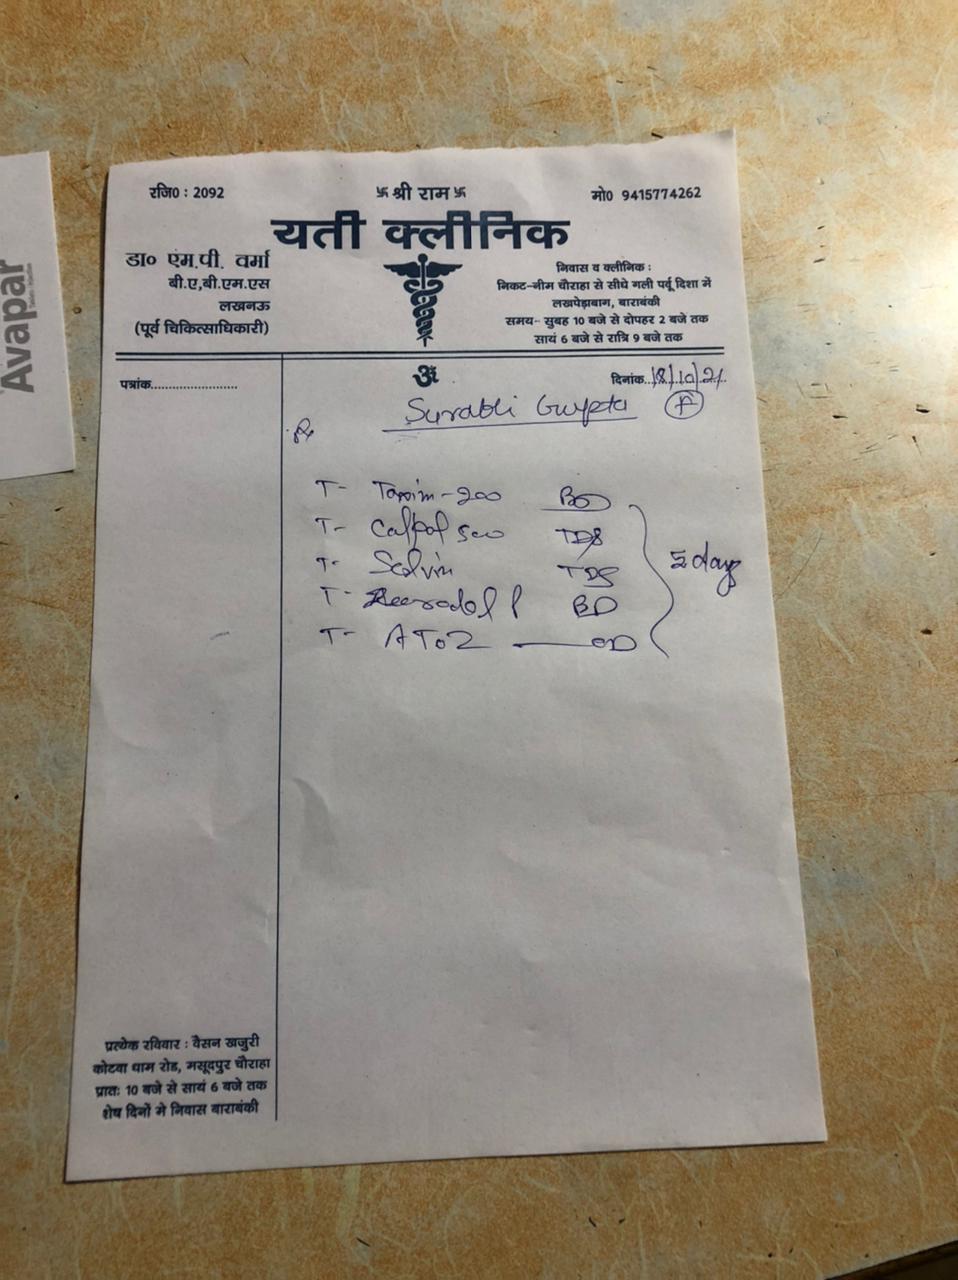 Avapar
रजि0 : 2092
卐 श्री राम 卐
मो0 9415774262
यती क्लीनिक
डा० एम.पी. वर्मा
बी.ए,बी.एम.एस
लखनऊ
(पूर्व चिकित्साधिकारी)
निवास व क्लीनिक :
निकट-नीम चौराहा से सीधे गली पर्वू दिशा में
लखपेड़ाबाग, बाराबंकी
समय- सुबह 10 बजे से दोपहर 2 बजे तक
सायं 6 बजे से रात्रि 9 बजे तक
पत्रांक........................
ॐ
दिनांक..18/10/21
Surabhi Gupta (F)
Rx
T- Taxim-200 BD
T- Calpol 500 TDS
T- Solvin TDS
T- P BD
T- A To Z OD
5 days
प्रत्येक रविवार : वैसन खजुरी
कोटवा धाम रोड, मसूदपुर चौराहा
प्रातः 10 बजे से सायं 6 बजे तक
शेष दिनों मे निवास बाराबंकी